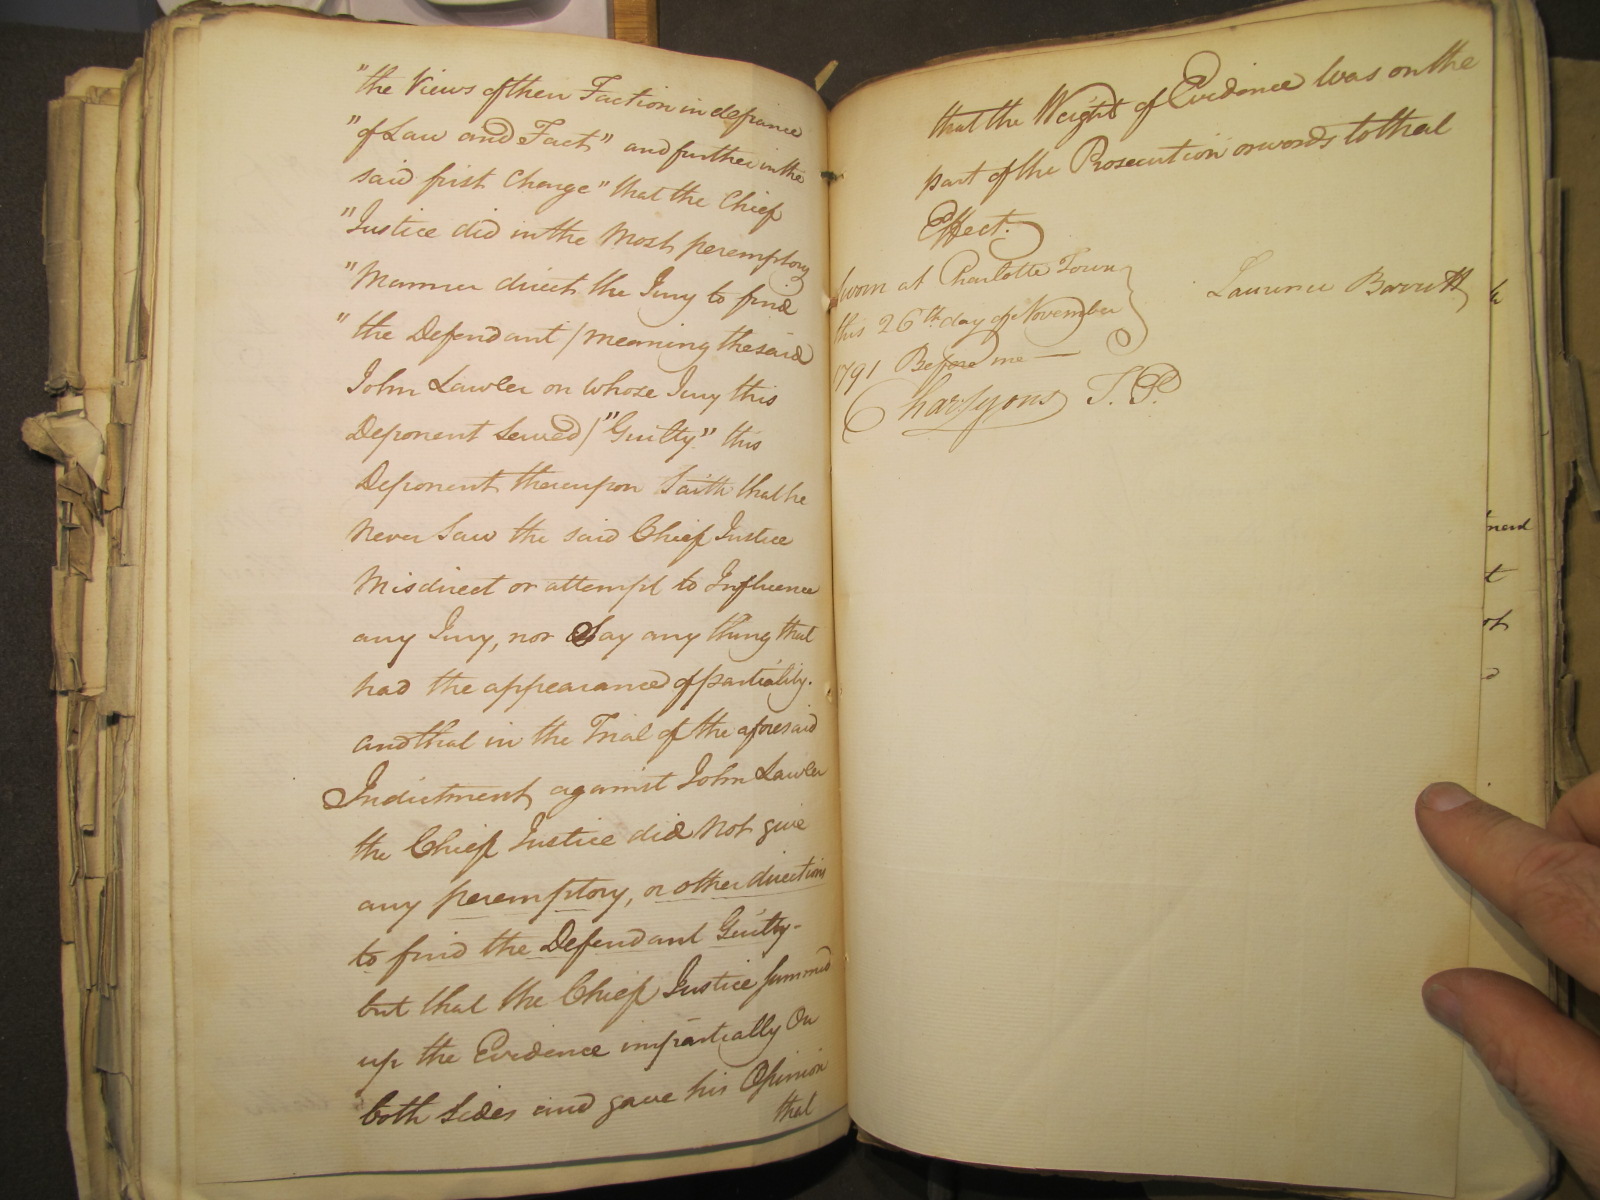 "the Views of their Faction in defiance
"of Law and Fact" and further in the
said first Charge "that the Chief
"Justice did in the Most peremptory
"Manner direct the Jury to find
"the Defendant / meaning the said
John Lawler on whose Jury this
Deponent Served / "Guilty" this
Deponent thereupon Saith that he
Never Saw the said Chief Justice
Misdirect or attempt to Influence
any Jury, nor Say any thing that
had the appearance of partiality.
and that in the Trial of the aforesaid
Indictment against John Lawler
the Chief Justice did Not give
any peremptory, or other directions
to find the Defendant Guilty-
but that the Chief Justice summed
up the Evidence impartially On
both Sides and gave his Opinion
that
that the Weight of Evidence Was on the
part of the Prosecution or words to that
Effect.
Sworn at Charlotte Town
this 26th day of November
1791 Before me —
Chas Lyons J. P.
Laurence Barrett